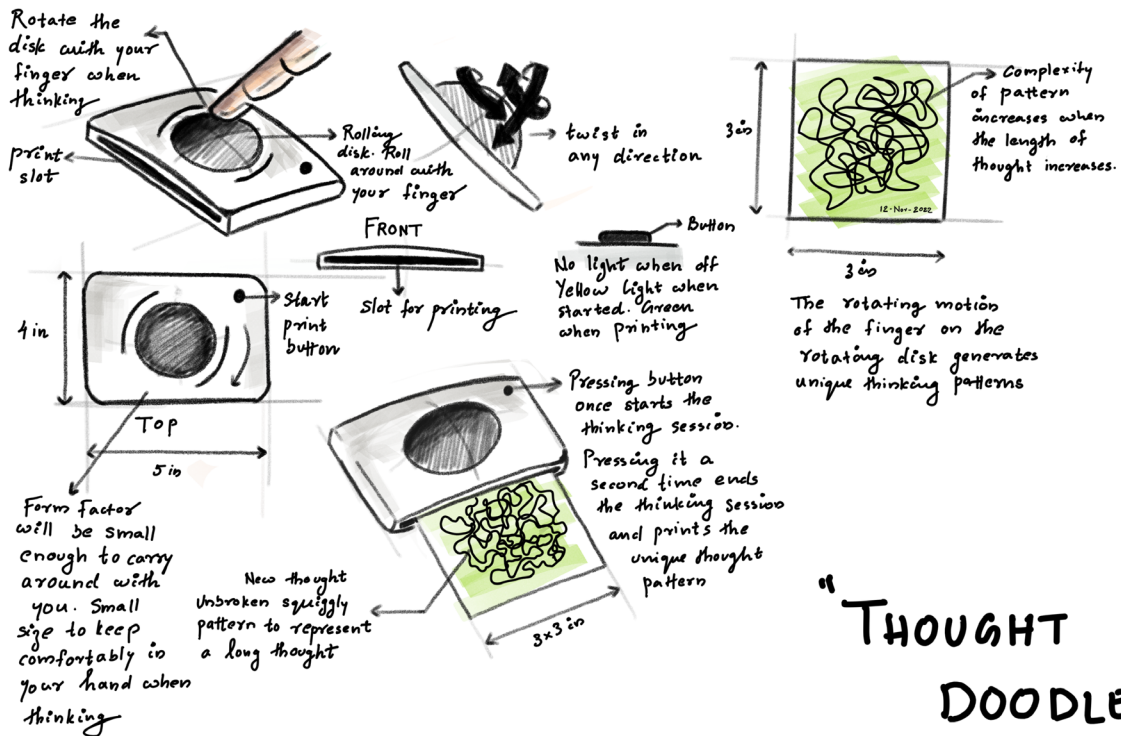 Rotate the
disk with your
finger when
thinking
print
slot
Rolling
disk. Roll
around with
your finger
twist in
any direction
3 in
12-Nov-2022
3 in
Complexity
of pattern
increases when
the length of
thought increases.
FRONT
Slot for printing
Button
No light when off
Yellow light when
started. Green
when printing
The rotating motion
of the finger on the
rotating disk generates
unique thinking patterns
4 in
Start
print
button
TOP
5 in
Form factor
will be small
enough to carry
around with
you. Small
size to keep
comfortably in
your hand when
thinking
Pressing button
once starts the
thinking session.
Pressing it a
second time ends
the thinking session
and prints the
unique thought
pattern
New thought
Unbroken squiggly
pattern to represent
a long thought
3x3 in
"THOUGHT
DOODLE